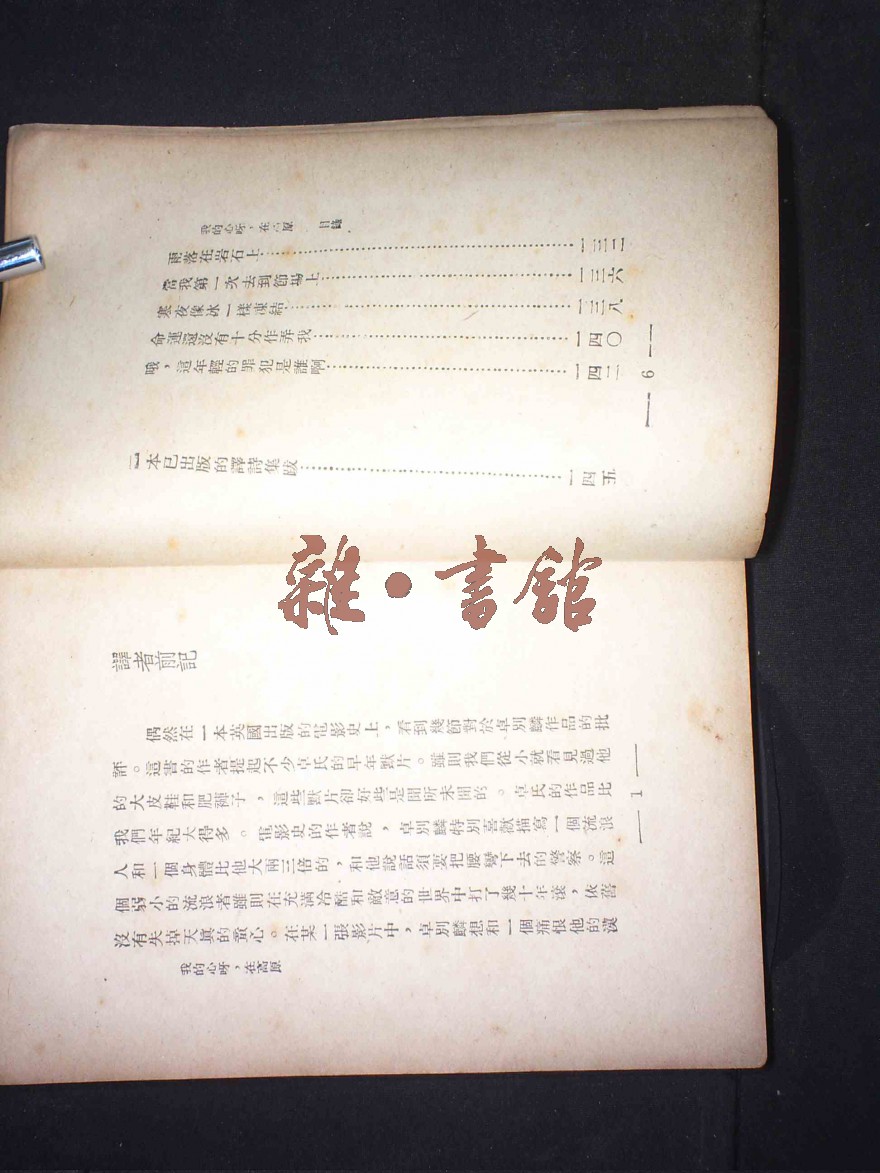 我的心呀，在高原　目錄
雨落在岩石上……一三二
當我第一次去到節場上……一三六
寒夜像冰一樣凍結……一三八
命運還沒有十分作弄我……一四〇
哦，這年輕的罪犯是誰啊……一四二
一本已出版的譯詩集跋……一四五
6
雜·書館
譯者前記
偶然在一本英國出版的電影史上，看到幾節對於卓別麟作品的批
評。這書的作者提起不少卓氏的早年默片。雖則我們從小就看見過他
的大皮鞋和肥褲子，這些默片卻好些是聞所未聞的。卓氏的作品比
我們年紀大得多。電影史的作者說，卓別麟特別喜歡描寫一個流浪
人和一個身體比他大兩三倍的，和他說話須要把腰彎下去的警察。這
個弱小的流浪者雖則在充滿冷酷和敵意的世界中打了幾十年滾，依舊
沒有失掉天真的童心。在某一張影片中，卓別麟想和一個痛恨他的漢
我的心呀，在高原
1